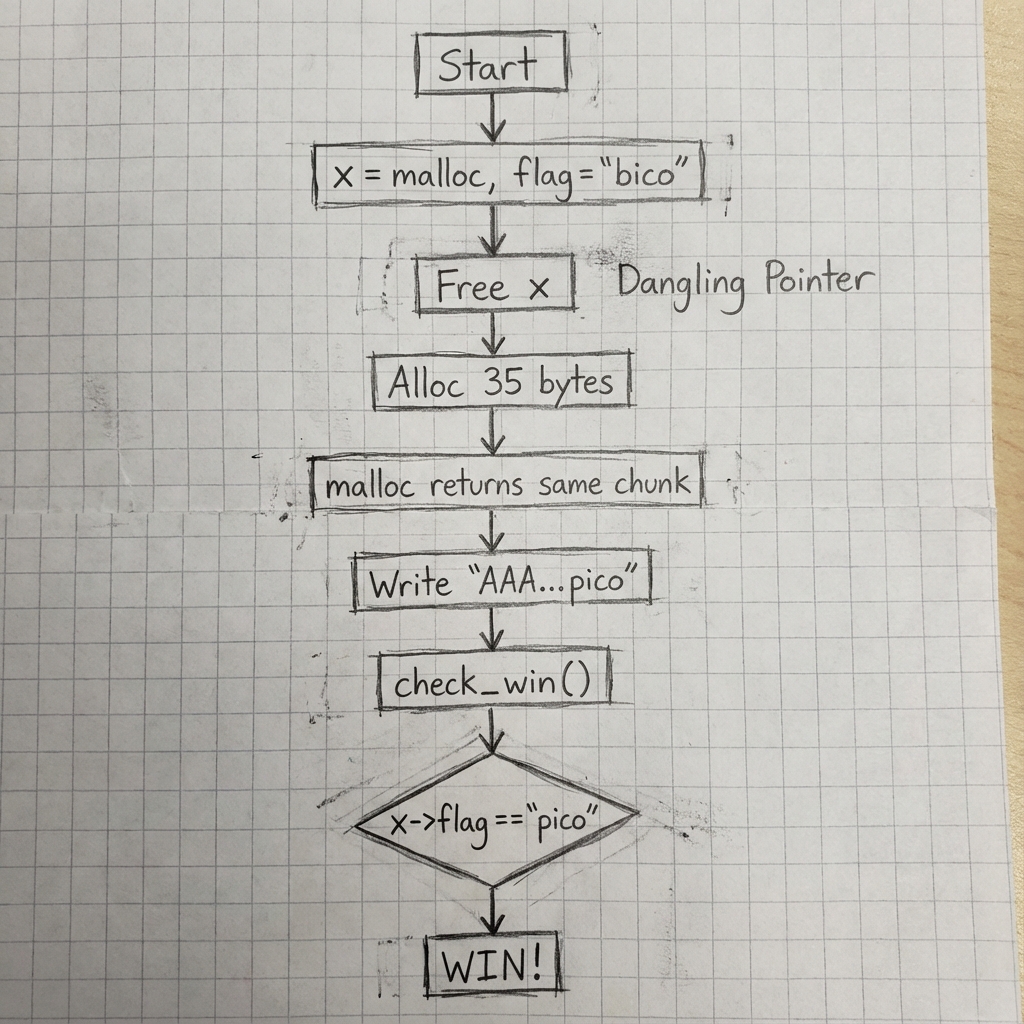 Start
x = malloc, flag = "bico"
Free x
Dangling Pointer
Alloc 35 bytes
malloc returns same chunk
Write "AAA...pico"
check_win()
x->flag == "pico"
WIN!